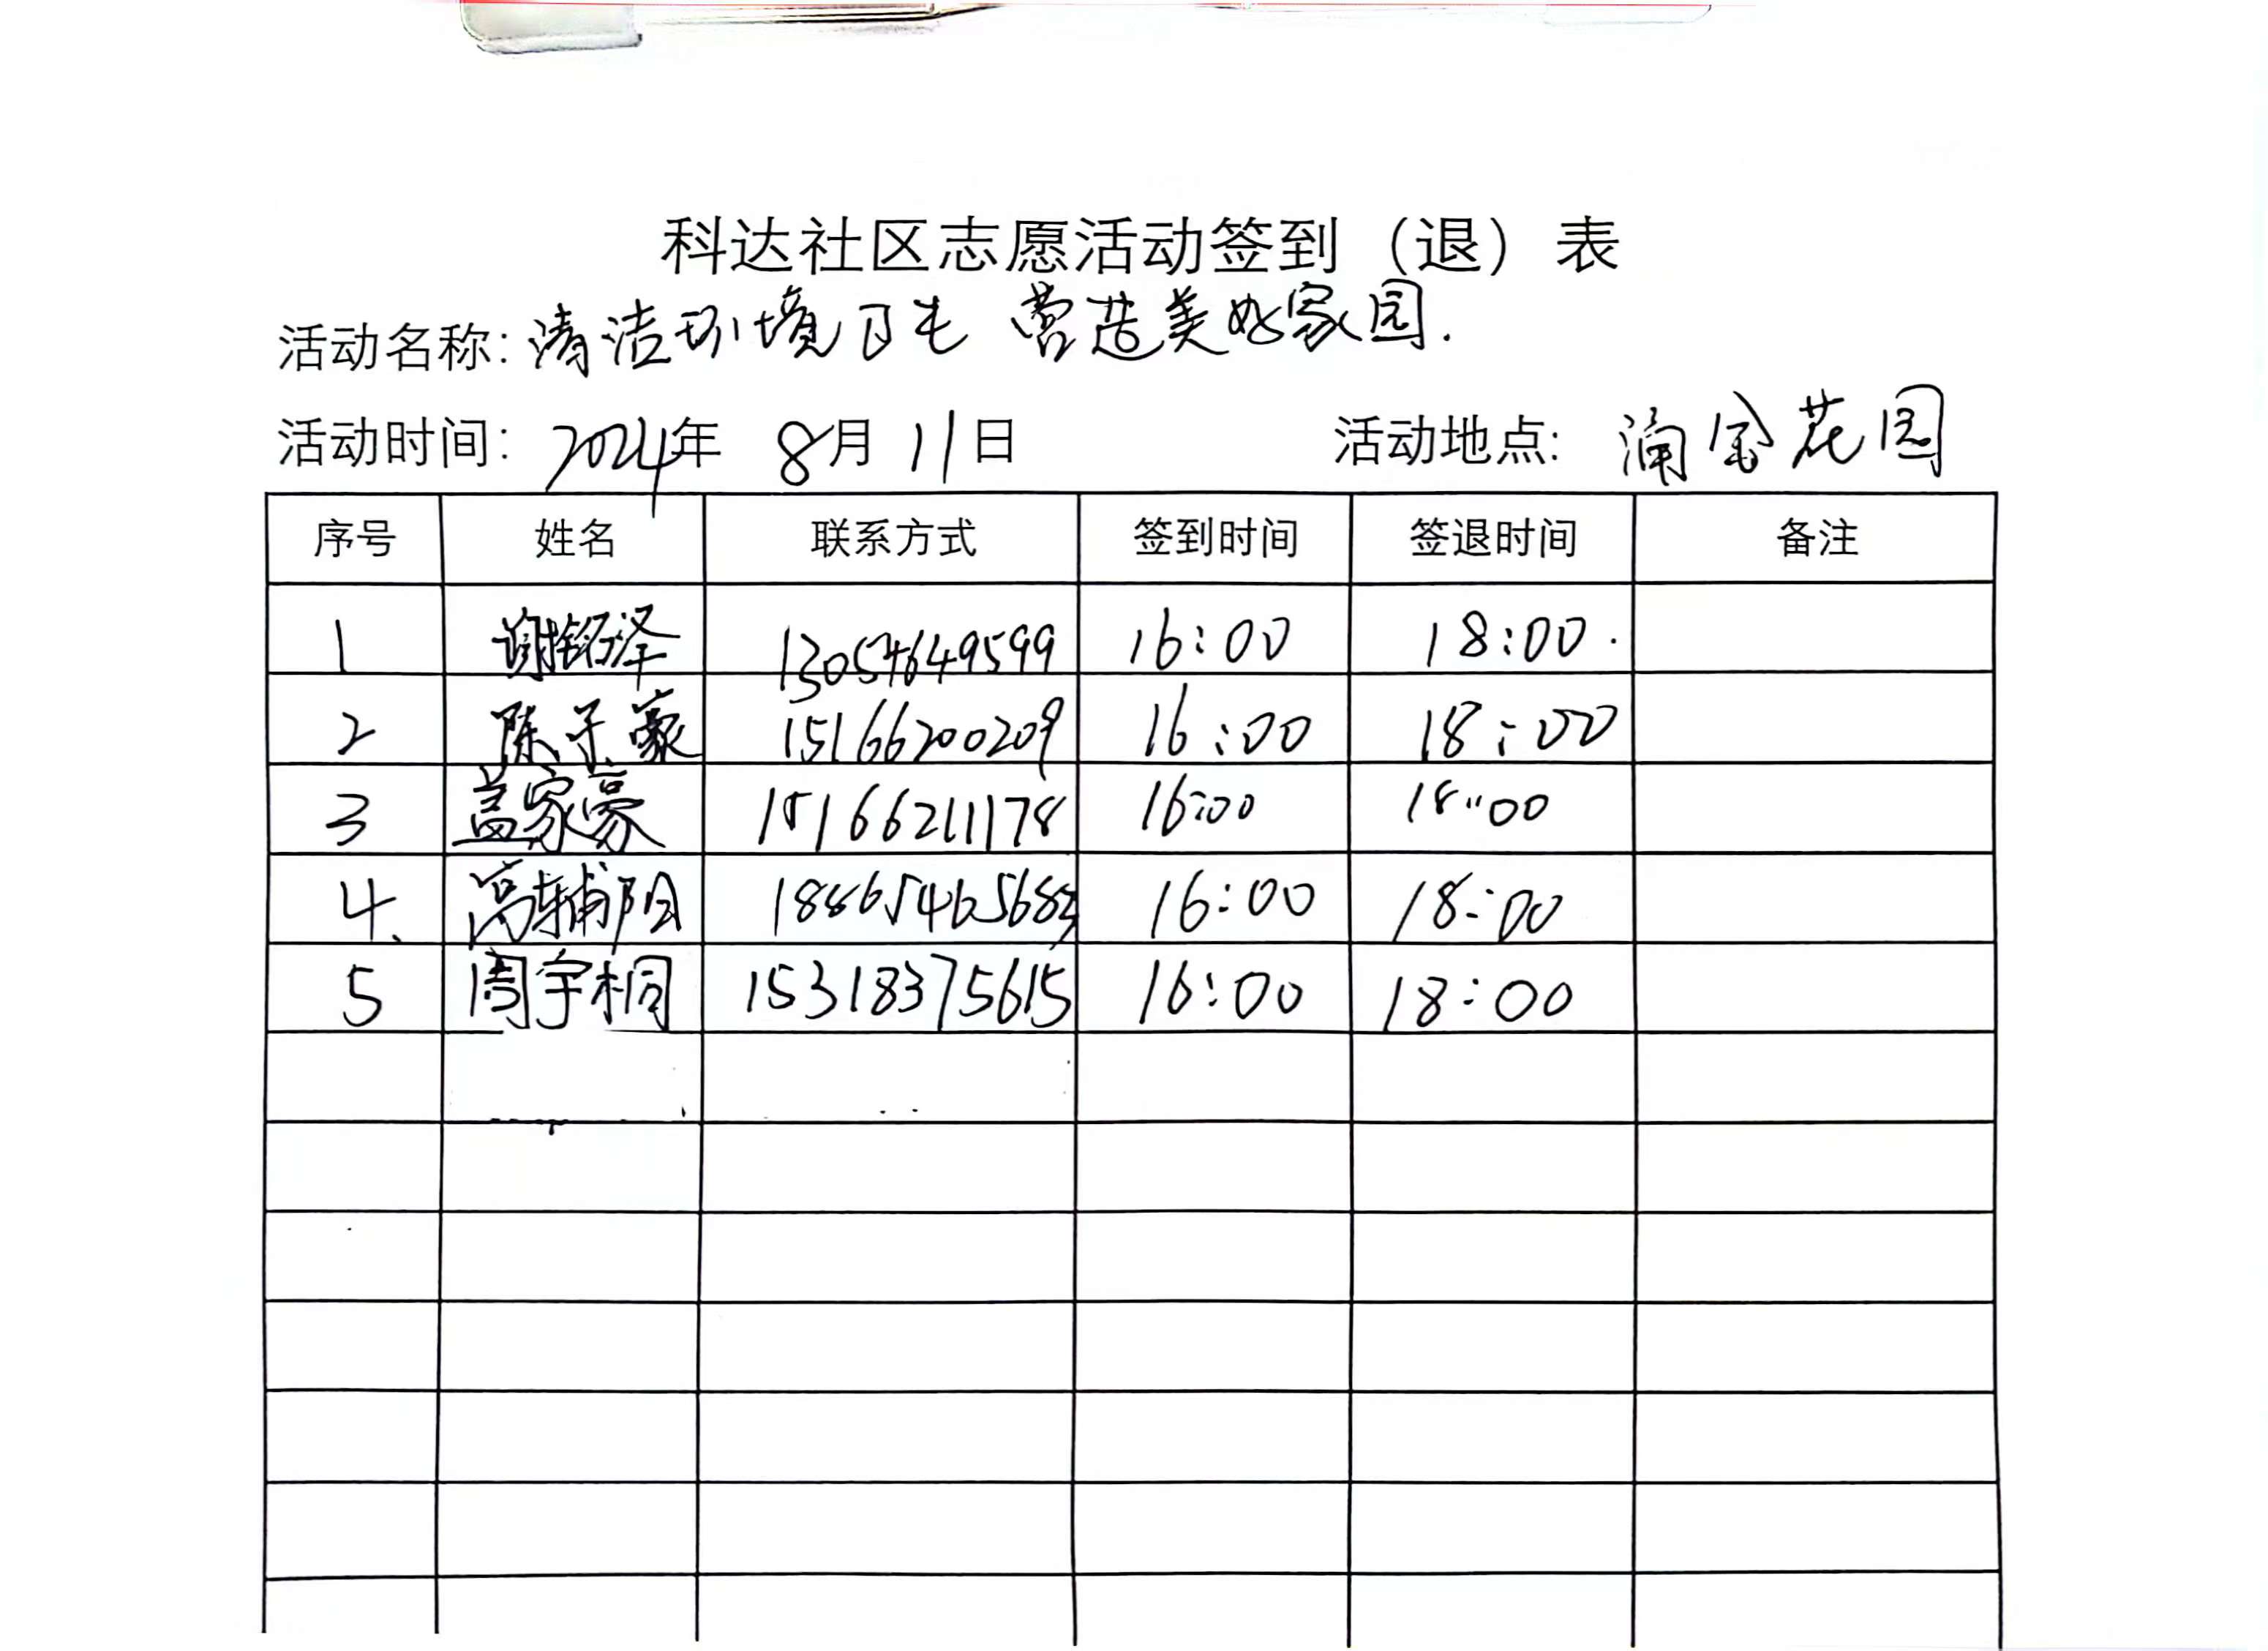 科达社区志愿活动签到（退）表
活动名称：清洁环境卫生 营造美好家园.
活动时间：2024年 8月11日 活动地点：润宝花园
序号 姓名 联系方式 签到时间 签退时间 备注
1 谢铭泽 13054649599 16:00 18:00.
2 陈子豪 15166200209 16:00 18:00
3 盖家豪 15166211178 16:00 18:00
4. 高辅阳 16:00 18:00
5 周宇桐 15318375615 16:00 18:00